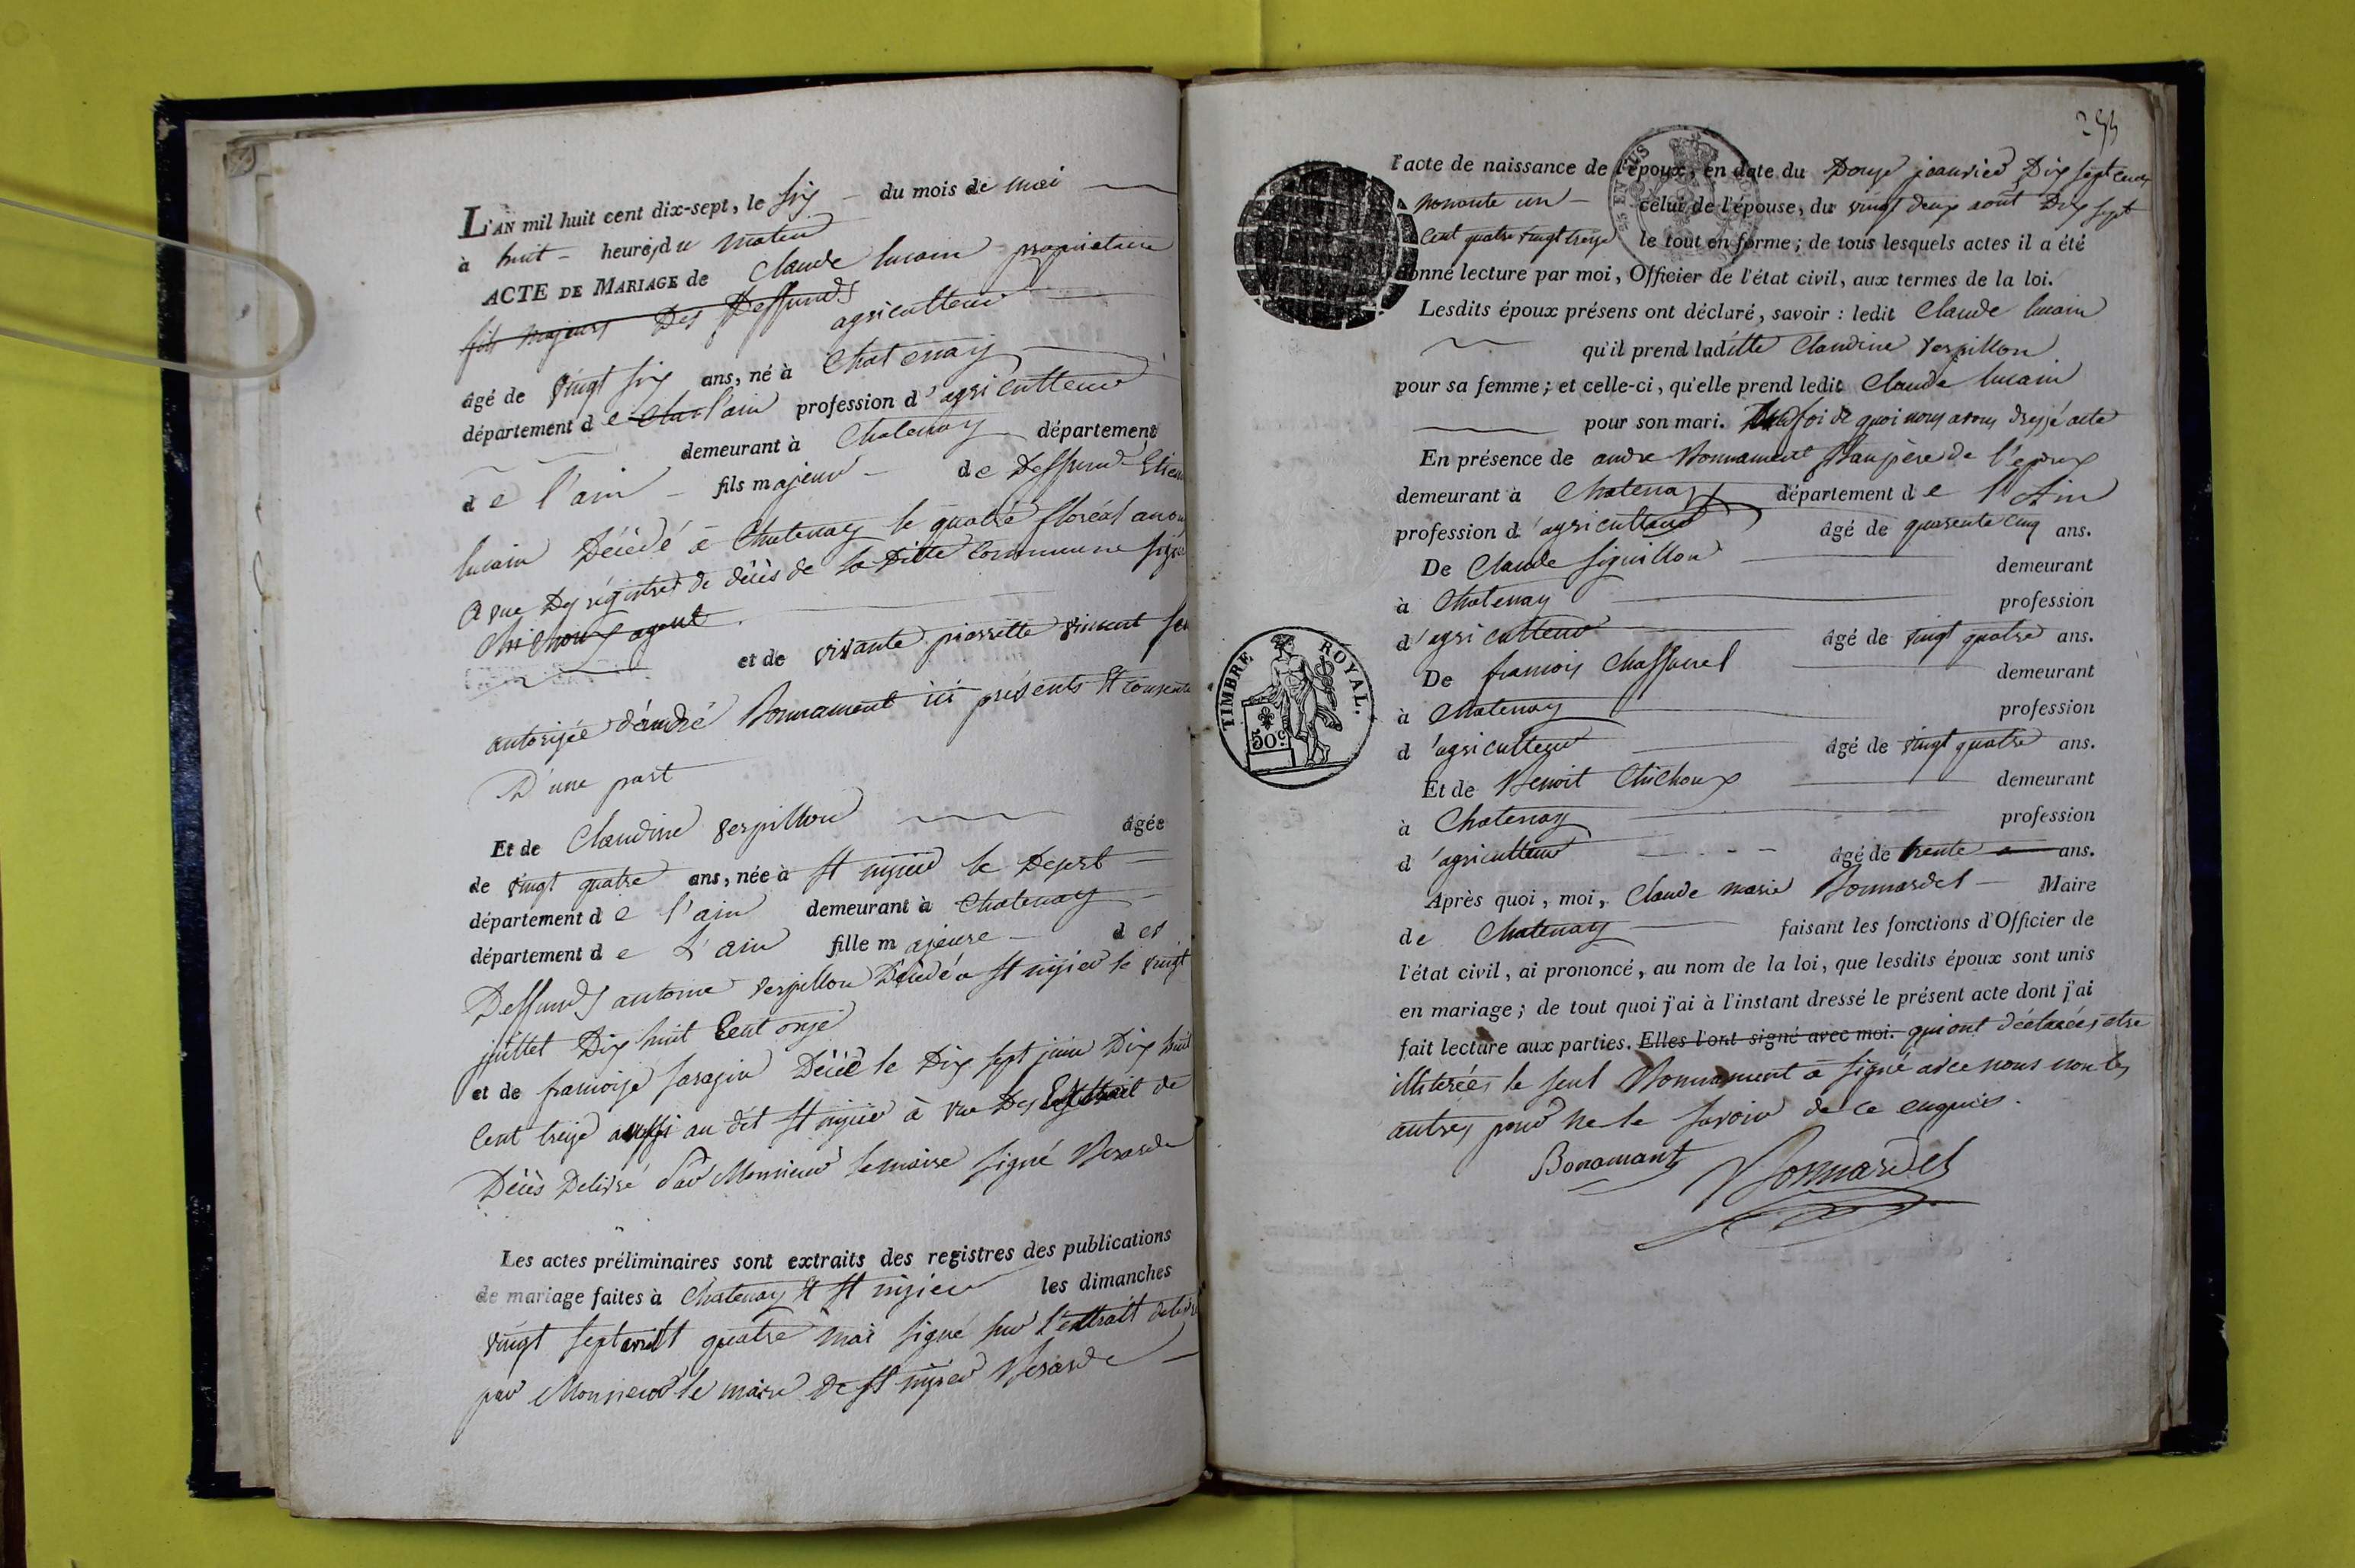 L'AN mil huit cent dix-sept, le six du mois de mai
à huit heures du matin
ACTE DE MARIAGE de Claude lucain propriétaire
fils majeurs Des Deffunds
agriculteur
âgé de vingt six ans, né à Chatenay
département de l'ain profession d'agriculteur
demeurant à Chatenay département
de l'ain fils majeur de Deffund
lucain Décédé à Chatenay le quatre floréal
a vue Des régistres de décès de la Ditte Commune
Chichoux agent
et de vivante pierrette vincent
autorisée d'andré Bonnament ici présents Et
D'une part
Et de Claudine vespillon âgée
de vingt quatre ans, née à St nizier le Desert
département de l'ain demeurant à Chatenay
département de L'ain fille majeure des
Deffunds antoine vespillon Décédé a St nizier le vingt
juillet Dix huit Cent onze
et de francoise sarazin Décéd le Dix sept juin Dix huit
Cent treize aussi au dit St nizier à vue Des Extrait de
Décès Delivré Par Monsieur le maire signé
Les actes préliminaires sont extraits des registres des publications
de mariage faites à Chatenay Et St nizier les dimanches
vingt sept avril Et quatre mai signé sur l'extrait
par Monsieur le maire De St nizier
l'acte de naissance de l'époux, en date du Douze janvier Dix sept cent
nonante un celui de l'épouse, du vingt deux août Dix sept
Cent quatre vingt treize le tout en forme; de tous lesquels actes il a été
donné lecture par moi, Officier de l'état civil, aux termes de la loi.
Lesdits époux présens ont déclaré, savoir : ledit Claude lucain
qu'il prend ladite Claudine vespillon
pour sa femme; et celle-ci, qu'elle prend ledit Claude lucain
pour son mari. foi de quoi nous avons dressé acte
En présence de andre Bonnament Beaupère de l'epoux
demeurant à Chatenay département de l'Ain
profession d'agriculteur âgé de quarente cinq ans.
De Claude siguillon demeurant
à Chatenay profession
d'agriculteur âgé de vingt quatre ans.
De francois Chaffaurel demeurant
à Chatenay profession
d'agriculteur âgé de vingt quatre ans.
Et de Benoit Chichoux demeurant
à Chatenay profession
d'agriculteur âgé de trente ans.
Après quoi, moi, Claude marie Bonnardel Maire
de Chatenay faisant les fonctions d'Officier de
l'état civil, ai prononcé, au nom de la loi, que lesdits époux sont unis
en mariage; de tout quoi j'ai à l'instant dressé le présent acte dont j'ai
fait lecture aux parties. Elles l'ont signé avec moi. qui ont déclarées etre
illiterées le seul Bonnament a signé avec nous non les
autres pour ne le savoir de ce enquis.
Bonamant Bonnardel
TIMBRE ROYAL.
50c